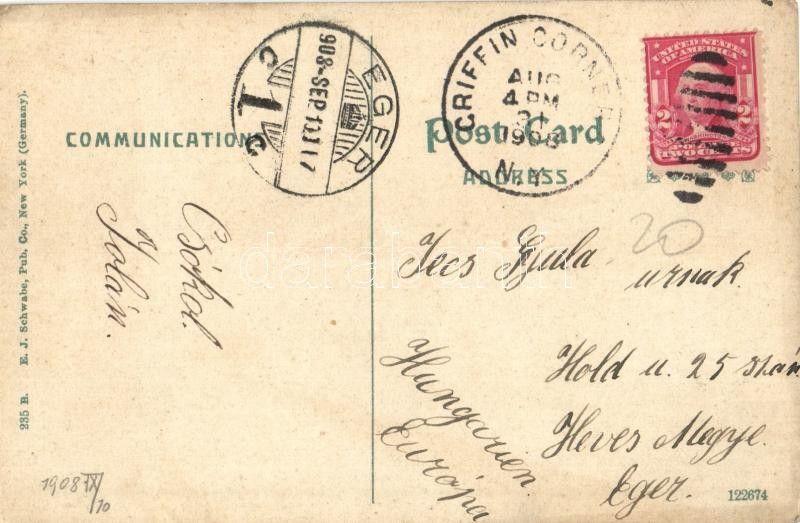 235 B.   E. J. Schwabe, Pub. Co., New York (Germany).
COMMUNICATION
Post Card
ADDRESS
EGER
908-SEP 10
GRIFFIN CORNERS
AUG
4 PM
31
1908
N.Y.
UNITED STATES
OF AMERICA
2 2
TWO CENTS
20
Csókol
Jolán.
Gyula urnak
Hold u. 25 szám
Heves Megye.
Eger.
Hungarien
Európa
1908 IX/10
122674
darabanth